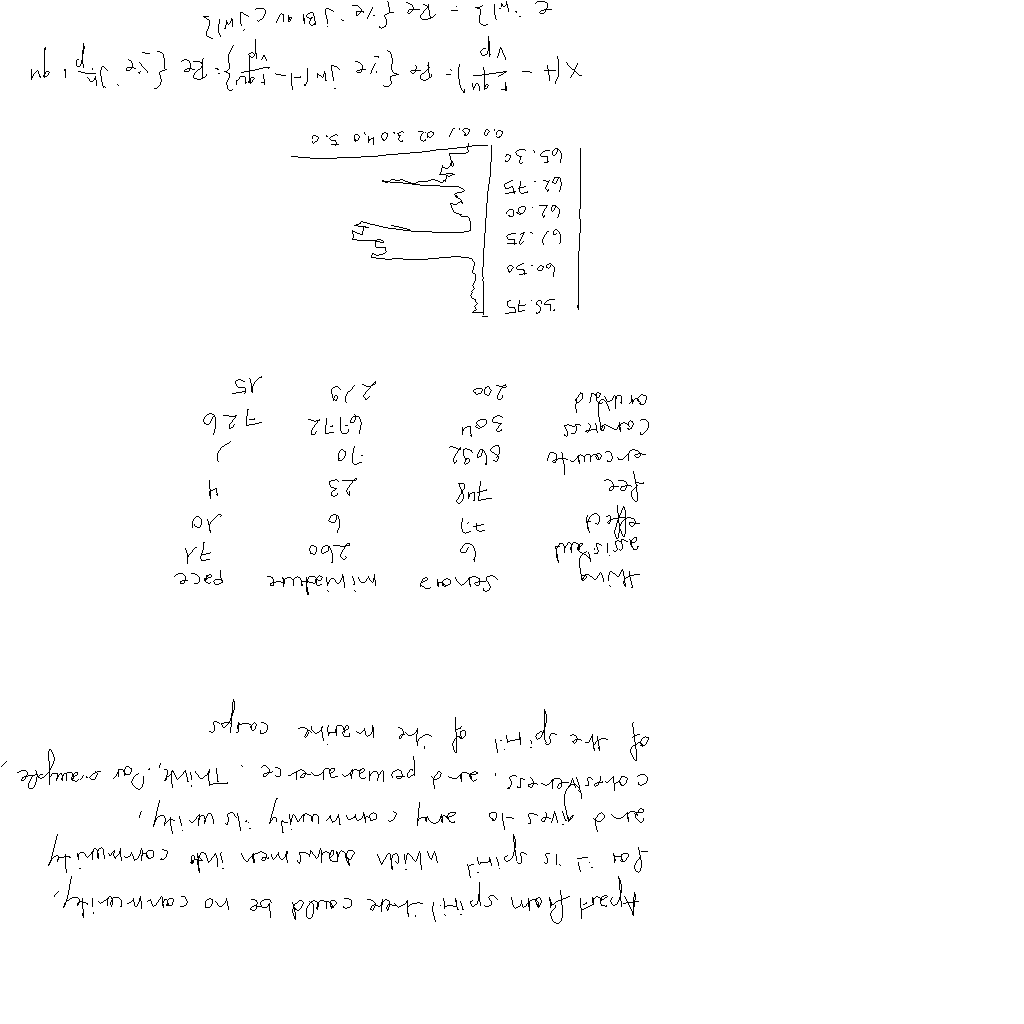 Apart from spirit there could be no community,
for it is spirit which draws men into community
and gives to any community its unity,
cohesiveness, and permanence. Think, for example,
of the spirit of the marine corps
thing senora miniature pace
assistant 6 260 71
effect 77 6 10
fee 748 23 4
encounte 8692 70
Congress 304 6772 726
orchard 200 219 15
60.50
61.25
62.00
62.75
65.30
0.0 0.1 02 3.0 4.0 5.0